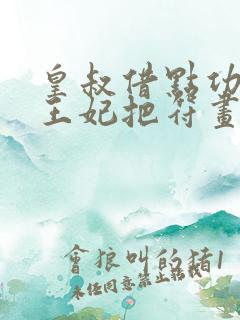 皇叔借點功
王妃把符畫
會狼叫的豬1
未經同意禁止轉載